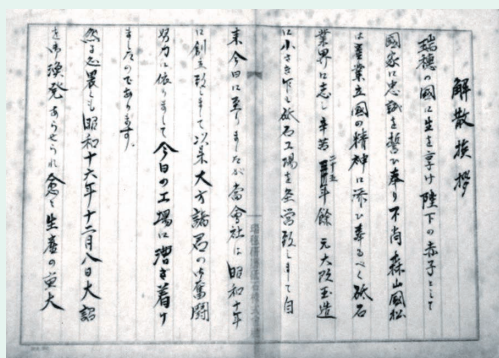 解散挨拶
瑞穂の国に生を享け陛下の赤子として
國家に忠誠を誓ひ奉り不肖森山國松
は産業立国の精神に添ひ奉るべく砥石
業界に志し辛苦三十年餘元大阪玉造
二十五
に小さき乍ら砥石工場を経営致しまして自
来今日に至りましたが當會社は昭和十年
に創立致しまして以来大方諸君の御奮闘
努力に依りまして今日の工場に漕ぎ着け
ましたのであります。
然る処畏くも昭和十六年十二月八日大詔
を御渙発あらせられ愈々生産の重大